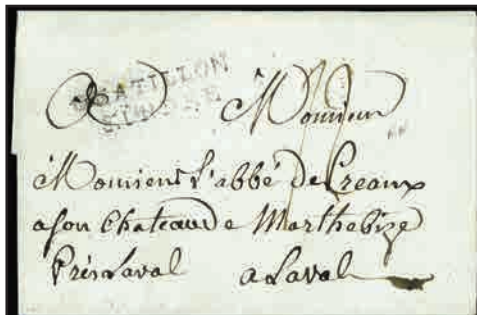 CHATILLON
A Monsieur
Monsieur l'abbé de Preaux
a son Chateau de Marthebize
Près Laval a Laval